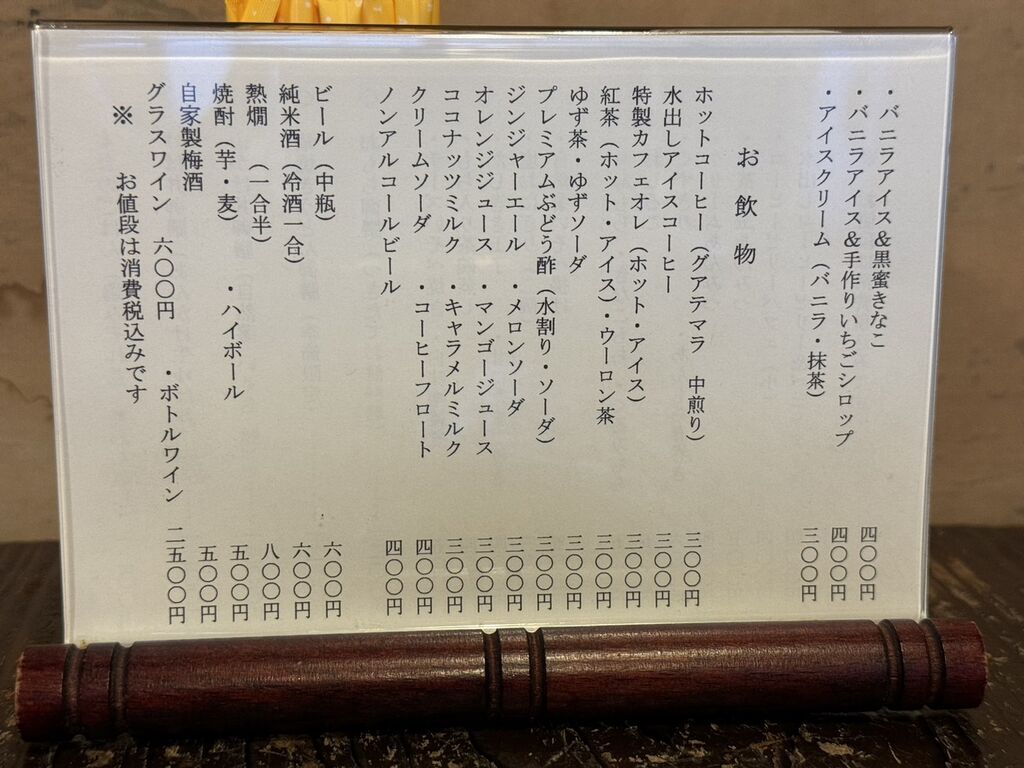 ・バニラアイス＆黒蜜きなこ　四〇〇円
・バニラアイス＆手作りいちごシロップ　四〇〇円
・アイスクリーム（バニラ・抹茶）　三〇〇円
お飲物
ホットコーヒー（グアテマラ　中煎り）　三〇〇円
水出しアイスコーヒー　三〇〇円
特製カフェオレ（ホット・アイス）　三〇〇円
紅茶（ホット・アイス）・ウーロン茶　三〇〇円
ゆず茶・ゆずソーダ　三〇〇円
プレミアムぶどう酢（水割り・ソーダ）　三〇〇円
ジンジャーエール　・メロンソーダ　三〇〇円
オレンジジュース　・マンゴージュース　三〇〇円
ココナッツミルク　・キャラメルミルク　三〇〇円
クリームソーダ　・コーヒーフロート　四〇〇円
ノンアルコールビール　四〇〇円
ビール（中瓶）　六〇〇円
純米酒（冷酒一合）　六〇〇円
熱燗　（一合半）　八〇〇円
焼酎（芋・麦）　・ハイボール　五〇〇円
自家製梅酒　五〇〇円
グラスワイン　六〇〇円　・ボトルワイン　二五〇〇円
※　お値段は消費税込みです